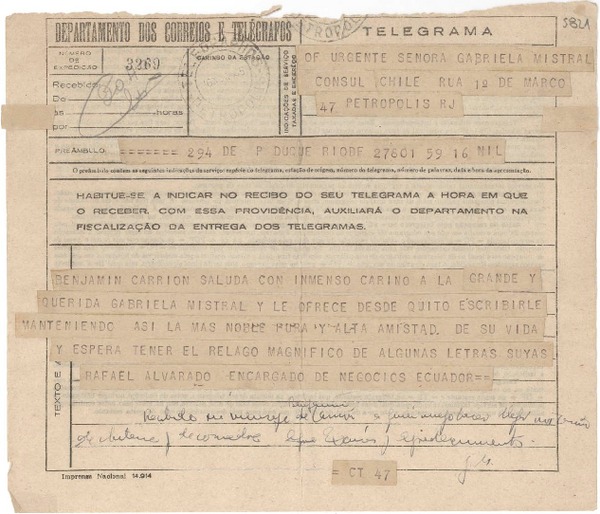 5821
DEPARTAMENTO DOS CORREIOS E TELÉGRAFOS
TELEGRAMA
NÚMERO DE EXPEDIÇÃO
3269
CARIMBO DA ESTAÇÃO
INDICAÇÕES DE SERVIÇO TAXADAS E ENDERÊÇO
OF URGENTE SENORA GABRIELA MISTRAL
CONSUL CHILE RUA 1º DE MARCO
47 PETROPOLIS RJ
Recebido
De
às horas
por
PREÂMBULO
======= 294 DE P DUQUE RIODF 27601 59 16 NIL
O preâmbulo contém as seguintes indicações de serviço: espécie do telegrama, estação de origem, número do telegrama, número de palavras, data e hora da apresentação.
HABITUE-SE A INDICAR NO RECIBO DO SEU TELEGRAMA A HORA EM QUE
O RECEBER. COM ESSA PROVIDÊNCIA, AUXILIARÁ O DEPARTAMENTO NA
FISCALIZAÇÃO DA ENTREGA DOS TELEGRAMAS.
TEXTO E
BENJAMIN CARRION SALUDA CON INMENSO CARINO A LA GRANDE Y
QUERIDA GABRIELA MISTRAL Y LE OFRECE DESDE QUITO ESCRIBIRLE
MANTENIENDO ASI LA MAS NOBLE PURA Y ALTA AMISTAD. DE SU VIDA
Y ESPERA TENER EL RELAGO MAGNIFICO DE ALGUNAS LETRAS SUYAS
RAFAEL ALVARADO ENCARGADO DE NEGOCIOS ECUADOR==
= CT 47
Imprensa Nacional 14.914